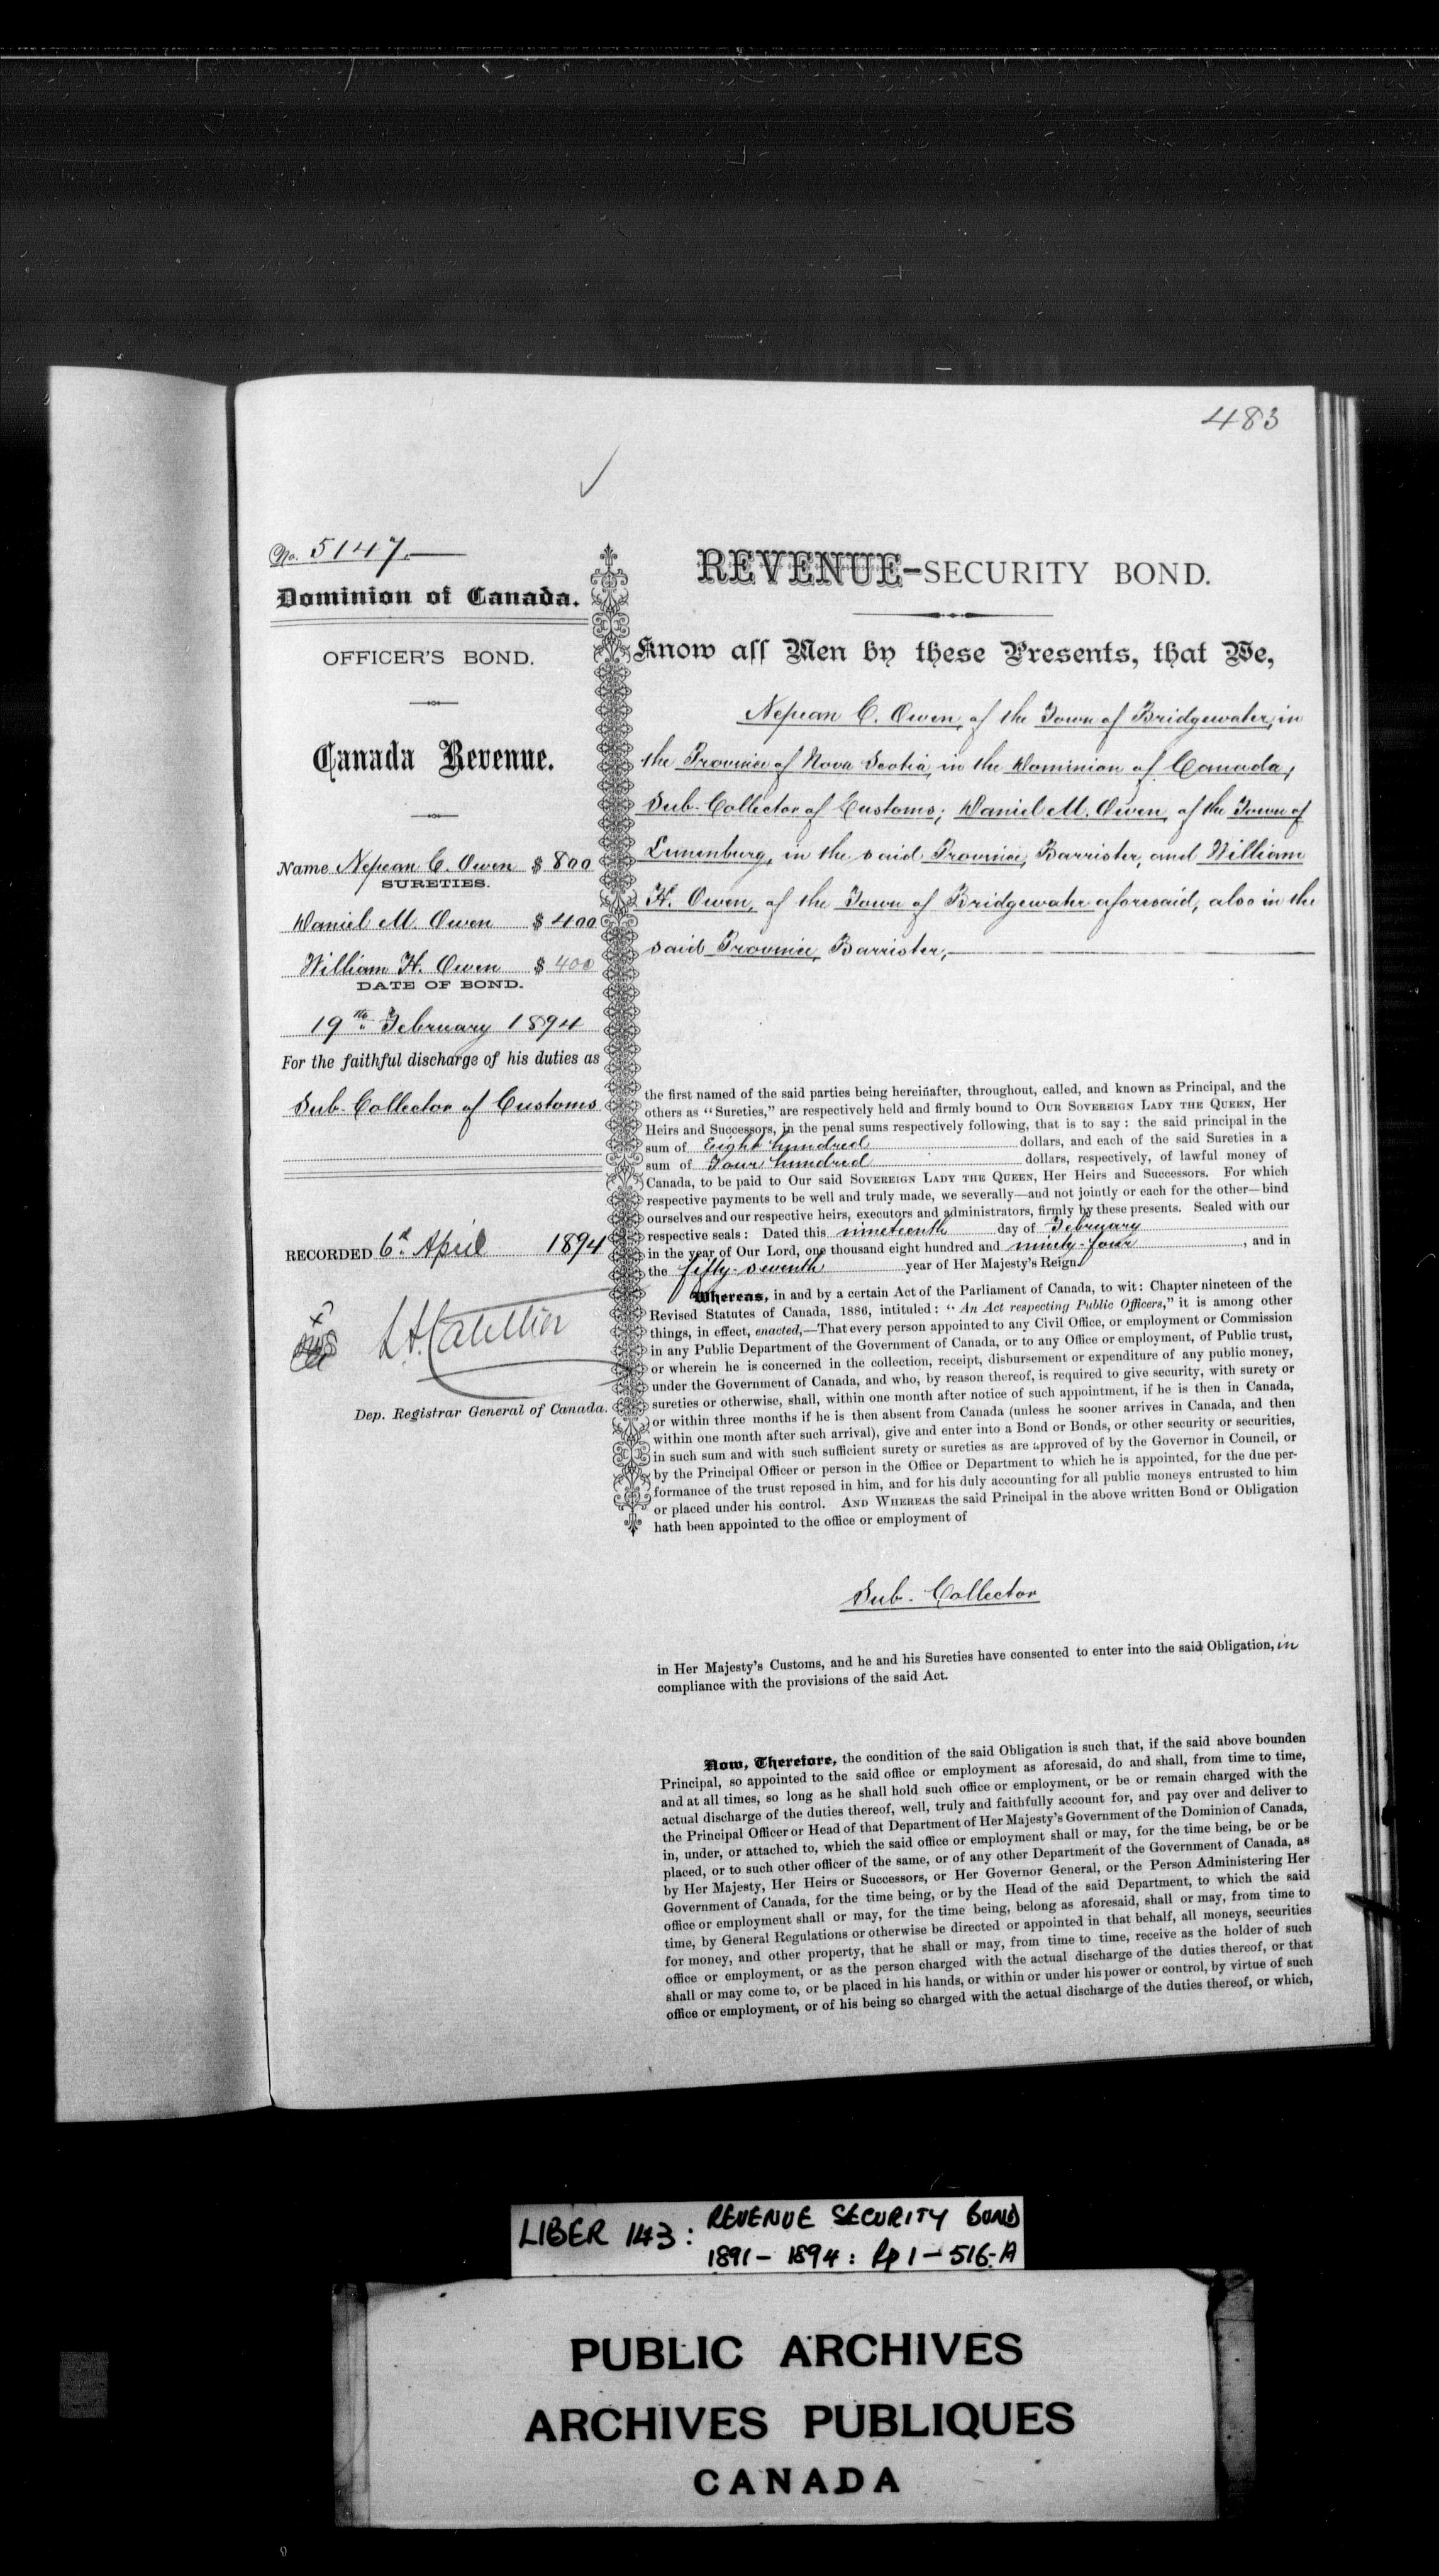 483
No. 5147.
Dominion of Canada.
OFFICER'S BOND.
Canada Revenue.
Name Nepean C. Owen $ 800
SURETIES.
Daniel M. Owen $ 400
William H. Owen $ 400
DATE OF BOND.
19th February 1894
For the faithful discharge of his duties as
Sub-Collector of Customs
RECORDED 6th April 1894
Dep. Registrar General of Canada.
REVENUE-SECURITY BOND.
Know all Men by these Presents, that We,
Nepean C. Owen, of the Town of Bridgewater, in
the Province of Nova Scotia, in the Dominion of Canada,
Sub-Collector of Customs; Daniel M. Owen, of the Town of
Lunenburg, in the said Province, Barrister, and William
H. Owen, of the Town of Bridgewater aforesaid, also in the
said Province, Barrister,
the first named of the said parties being hereinafter, throughout, called, and known as Principal, and the
others as "Sureties," are respectively held and firmly bound to OUR SOVEREIGN LADY THE QUEEN, Her
Heirs and Successors, in the penal sums respectively following, that is to say: the said principal in the
sum of Eight hundred dollars, and each of the said Sureties in a
sum of Four hundred dollars, respectively, of lawful money of
Canada, to be paid to Our said SOVEREIGN LADY THE QUEEN, Her Heirs and Successors. For which
respective payments to be well and truly made, we severally—and not jointly or each for the other—bind
ourselves and our respective heirs, executors and administrators, firmly by these presents. Sealed with our
respective seals: Dated this nineteenth day of February
in the year of Our Lord, one thousand eight hundred and ninety-four, and in
the fifty-seventh year of Her Majesty's Reign.
Whereas, in and by a certain Act of the Parliament of Canada, to wit: Chapter nineteen of the
Revised Statutes of Canada, 1886, intituled: "An Act respecting Public Officers," it is among other
things, in effect, enacted,—That every person appointed to any Civil Office, or employment or Commission
in any Public Department of the Government of Canada, or to any Office or employment, of Public trust,
or wherein he is concerned in the collection, receipt, disbursement or expenditure of any public money,
under the Government of Canada, and who, by reason thereof, is required to give security, with surety or
sureties or otherwise, shall, within one month after notice of such appointment, if he is then in Canada,
or within three months if he is then absent from Canada (unless he sooner arrives in Canada, and then
within one month after such arrival), give and enter into a Bond or Bonds, or other security or securities,
in such sum and with such sufficient surety or sureties as are approved of by the Governor in Council, or
by the Principal Officer or person in the Office or Department to which he is appointed, for the due per-
formance of the trust reposed in him, and for his duly accounting for all public moneys entrusted to him
or placed under his control. AND WHEREAS the said Principal in the above written Bond or Obligation
hath been appointed to the office or employment of
Sub-Collector
in Her Majesty's Customs, and he and his Sureties have consented to enter into the said Obligation, in
compliance with the provisions of the said Act.
Now, Therefore, the condition of the said Obligation is such that, if the said above bounden
Principal, so appointed to the said office or employment as aforesaid, do and shall, from time to time,
and at all times, so long as he shall hold such office or employment, or be or remain charged with the
actual discharge of the duties thereof, well, truly and faithfully account for, and pay over and deliver to
the Principal Officer or Head of that Department of Her Majesty's Government of the Dominion of Canada,
in, under, or attached to, which the said office or employment shall or may, for the time being, be or be
placed, or to such other officer of the same, or of any other Department of the Government of Canada, as
by Her Majesty, Her Heirs or Successors, or Her Governor General, or the Person Administering Her
Government of Canada, for the time being, or by the Head of the said Department, to which the said
office or employment shall or may, for the time being, belong as aforesaid, shall or may, from time to
time, by General Regulations or otherwise be directed or appointed in that behalf, all moneys, securities
for money, and other property, that he shall or may, from time to time, receive as the holder of such
office or employment, or as the person charged with the actual discharge of the duties thereof, or that
shall or may come to, or be placed in his hands, or within or under his power or control, by virtue of such
office or employment, or of his being so charged with the actual discharge of the duties thereof, or which,
LIBER 143: REVENUE SECURITY BOND
1891-1894: Pp 1-516-A
PUBLIC ARCHIVES
ARCHIVES PUBLIQUES
CANADA